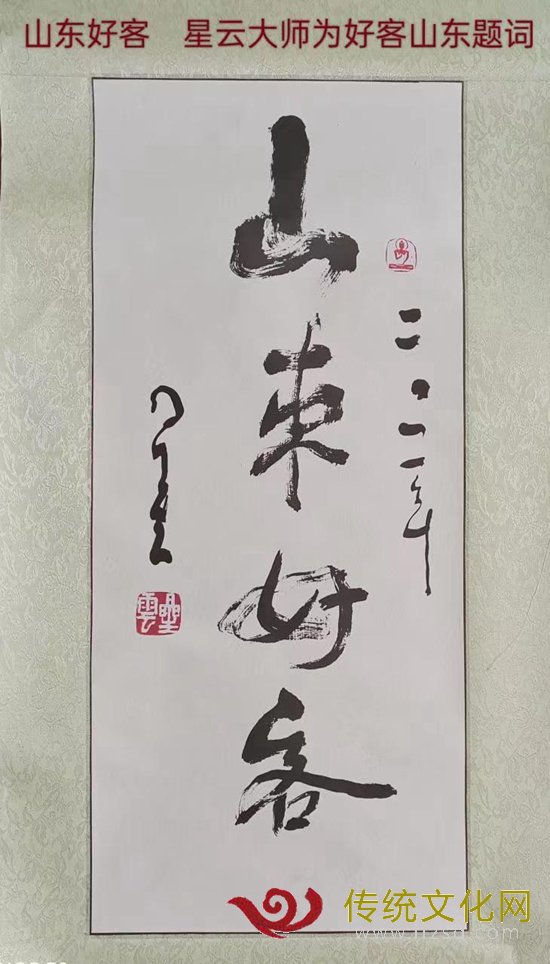 山东好客 星云大师为好客山东题词
山東好客
二〇一一年
星雲
传统文化网